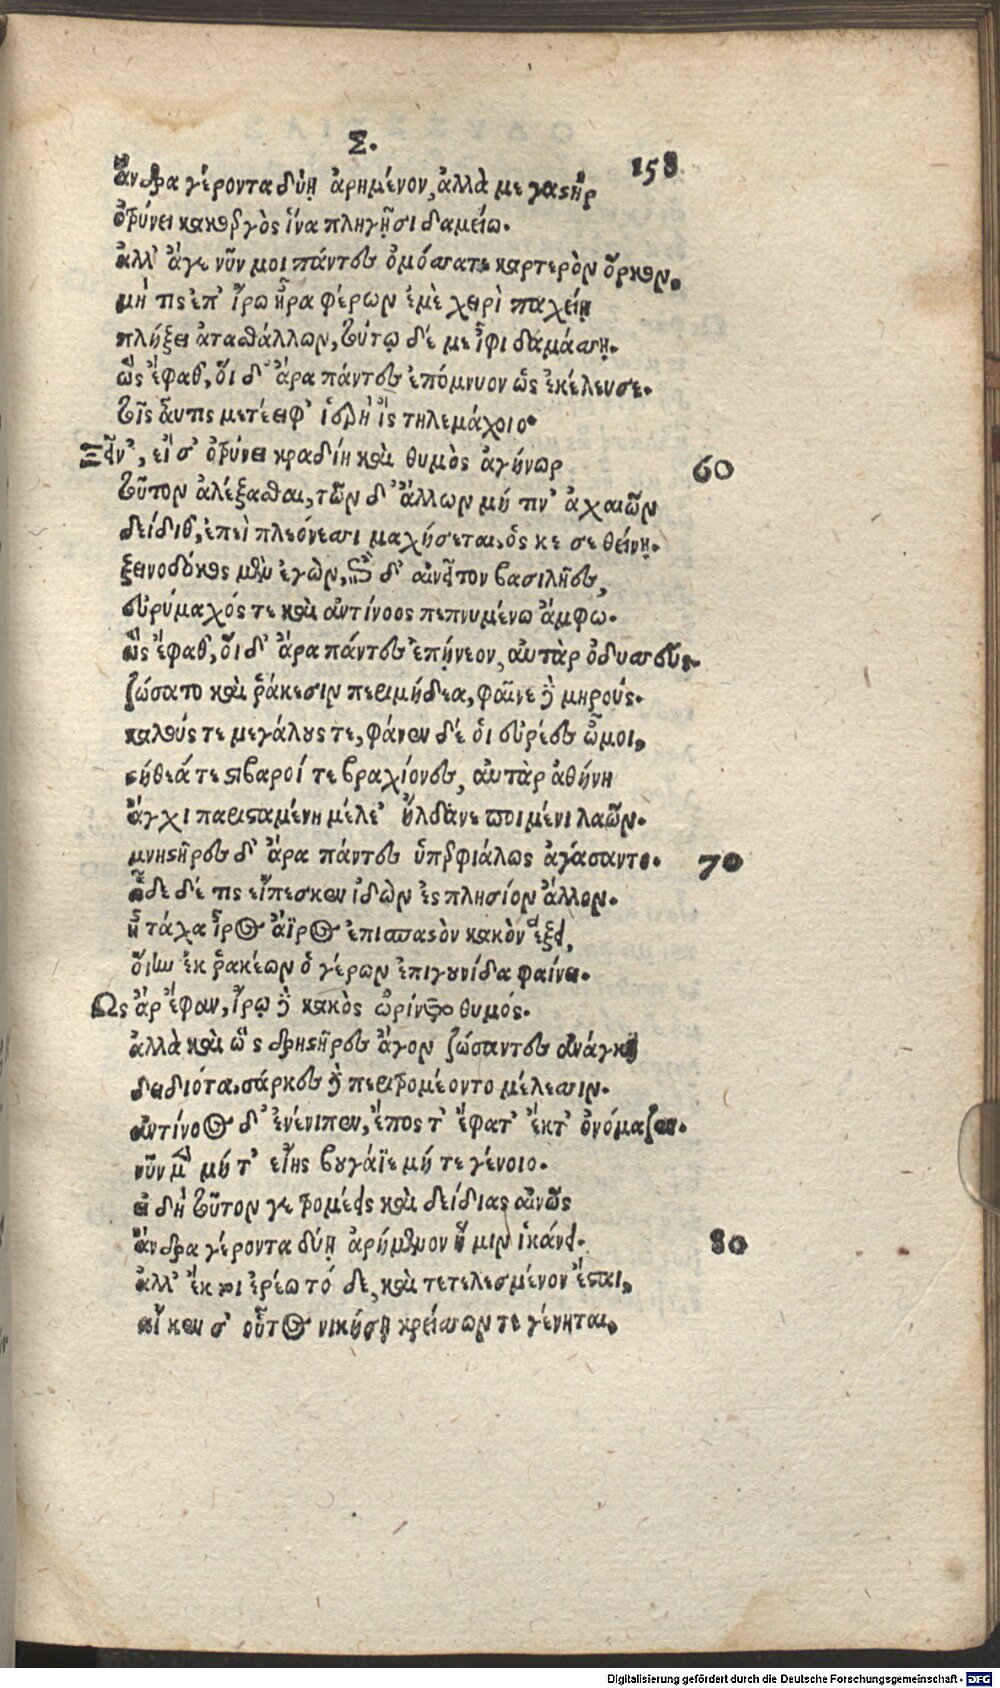 Σ.
158
ἄνδρα γέροντα δύῃ ἀρημένον, ἀλλὰ με γαστὴρ
ὀτρύνει κακοεργὸς ἵνα πληγῇσι δαμείω.
ἀλλ' ἄγε νῦν μοι πάντες ὀμόσατε καρτερὸν ὅρκον,
μή τις ἐπ' ἴρω ἦρα φέρων ἐμὲ χειρὶ παχείῃ
πλήξει ἀτασθάλλων, τούτῳ δέ με ἶφι δαμάσσῃ.
ὣς ἔφαθ', οἵ δ' ἄρα πάντες ἐπόμνυον ὡς ἐκέλευσε.
τοῖς αὖτις μετέειφ' ἱερὴ ἲς τηλεμάχοιο.
Ξεῖν', εἴ σ' ὀτρύνει κραδίη καὶ θυμὸς ἀγήνωρ
60
τοῦτον ἀλέξασθαι, τῶν δ' ἄλλων μή τιν' ἀχαιῶν
δείδιθ', ἐπεὶ πλεόνεσσι μαχήσεται, ὅς κε σε θείνῃ.
ξεινοδόκος μὲν ἐγὼν, ἐπὶ δ' αἰνεῖτον βασιλῆες,
εὐρύμαχός τε καὶ ἀντίνοος πεπνυμένω ἄμφω.
ὣς ἔφαθ', οἵ δ' ἄρα πάντες ἐπῄνεον, αὐτὰρ ὀδυσσεὺς
ζώσατο καὶ ῥάκεσιν περὶ μήδεα, φαῖνε δὲ μηρούς.
καλούς τε μεγάλους τε, φάνεν δέ οἱ εὐρέες ὦμοι,
στήθεά τε στιβαροί τε βραχίονες, αὐτὰρ ἀθήνη
ἄγχι παρισταμένη μέλε' ἤλδανε ποιμένι λαῶν.
μνηστῆρες δ' ἄρα πάντες ὑπερφιάλως ἀγάσαντο.
70
ὧδε δέ τις εἴπεσκεν ἰδὼν ἐς πλησίον ἄλλον.
ἦ τάχα ἶρος ἄϊρος ἐπισπαστὸν κακὸν ἕξει,
οἵην ἐκ ῥακέων ὁ γέρων ἐπιγουνίδα φαίνει.
Ὣς ἄρ ἔφαν, ἴρῳ δὲ κακὸς ὠρίνετο θυμός.
ἀλλὰ καὶ ὣς δρηστῆρες ἄγον ζώσαντες ἀνάγκῃ
δειδιότα, σάρκες δὲ περιτρομέοντο μέλεσσιν.
ἀντίνοος δ' ἐνένιπεν, ἔπος τ' ἔφατ' ἔκτ' ὀνόμαζεν.
νῦν μὲν μήτ' εἴης βουγάϊε μήτε γένοιο.
εἰ δὴ τοῦτον γε τρομέεις καὶ δείδιας αἰνῶς
ἄνδρα γέροντα δύῃ ἀρήμενον ἥ μιν ἱκάνει.
80
ἀλλ' ἔκ τοι ἐρέω τό δε, καὶ τετελεσμένον ἔσται,
αἴ κεν σ' οὗτος νικήσῃ κρείσσων τε γένηται,
Digitalisierung gefördert durch die Deutsche Forschungsgemeinschaft - DFG